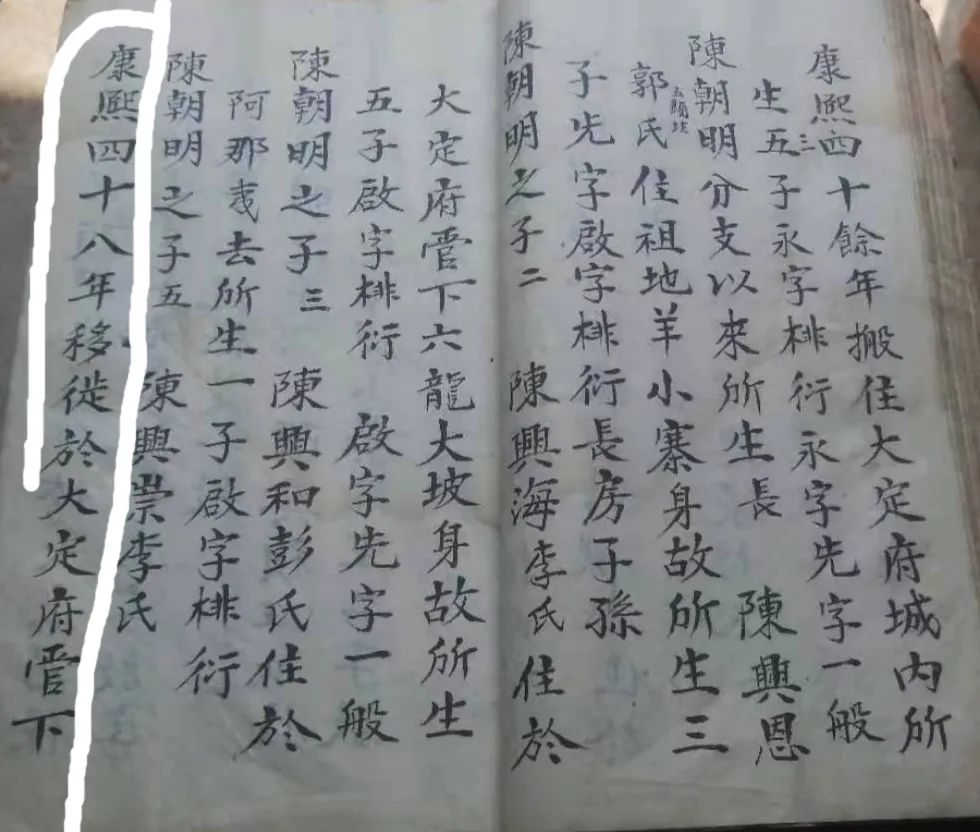 康熙四三十餘年搬住大定府城內所
生五子永字棑衍永字先字一般
陳朝明分支以來所生長 陳興恩
郭氏住祖地羊小寨身故所生三
子先字啟字棑衍長房子孫
陳朝明之子二 陳興海李氏住於
大定府管下六龍大坡身故所生
五子啟字棑衍 啟字先字一般
陳朝明之子三 陳興和彭氏住於
阿那去所生一子啟字棑衍
陳朝明之子五 陳興崇李氏
康熙四十八年移徙於大定府管下